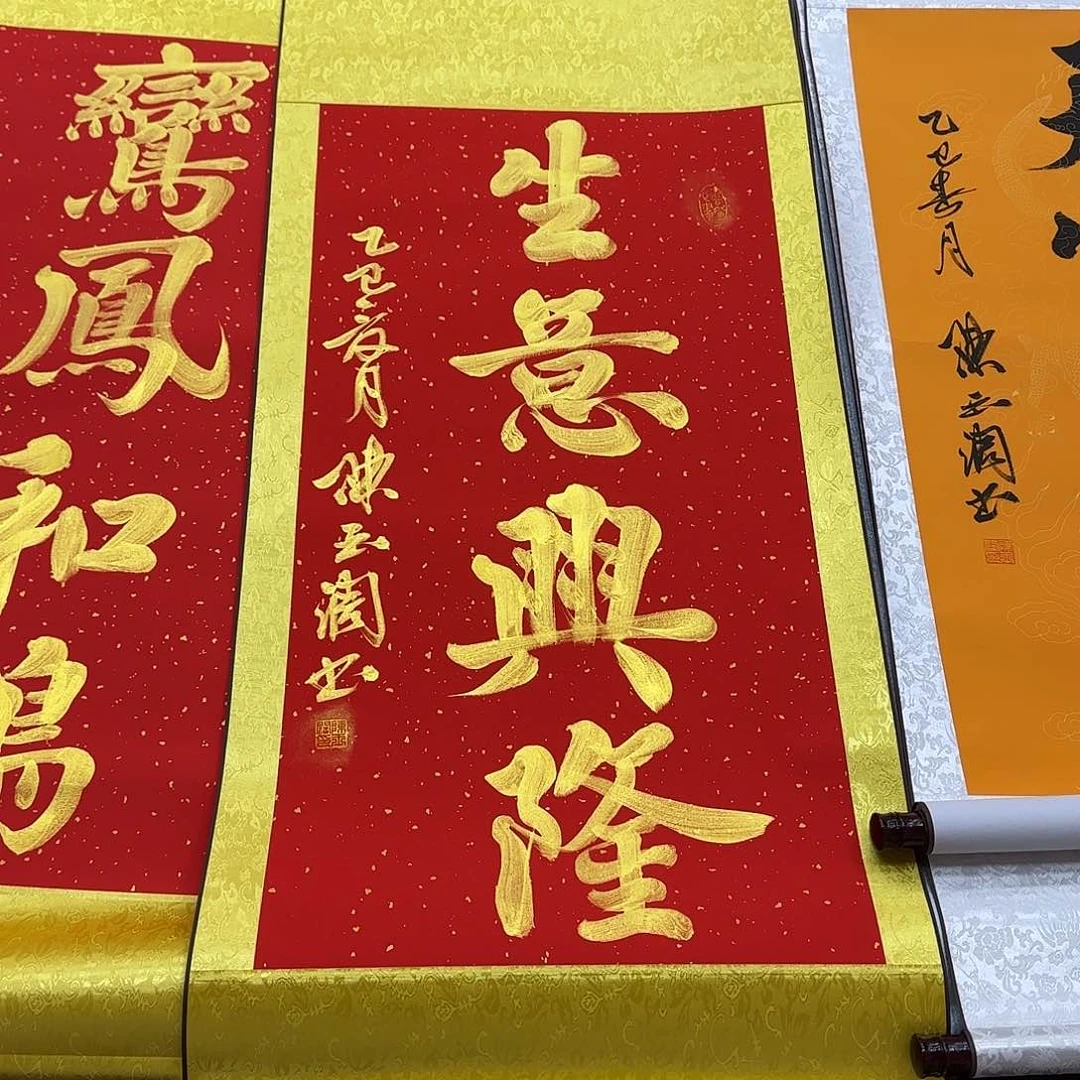 生意興隆
乙巳夏月 陳玉潤書
鸞鳳和鳴
乙巳春月 陳玉潤書